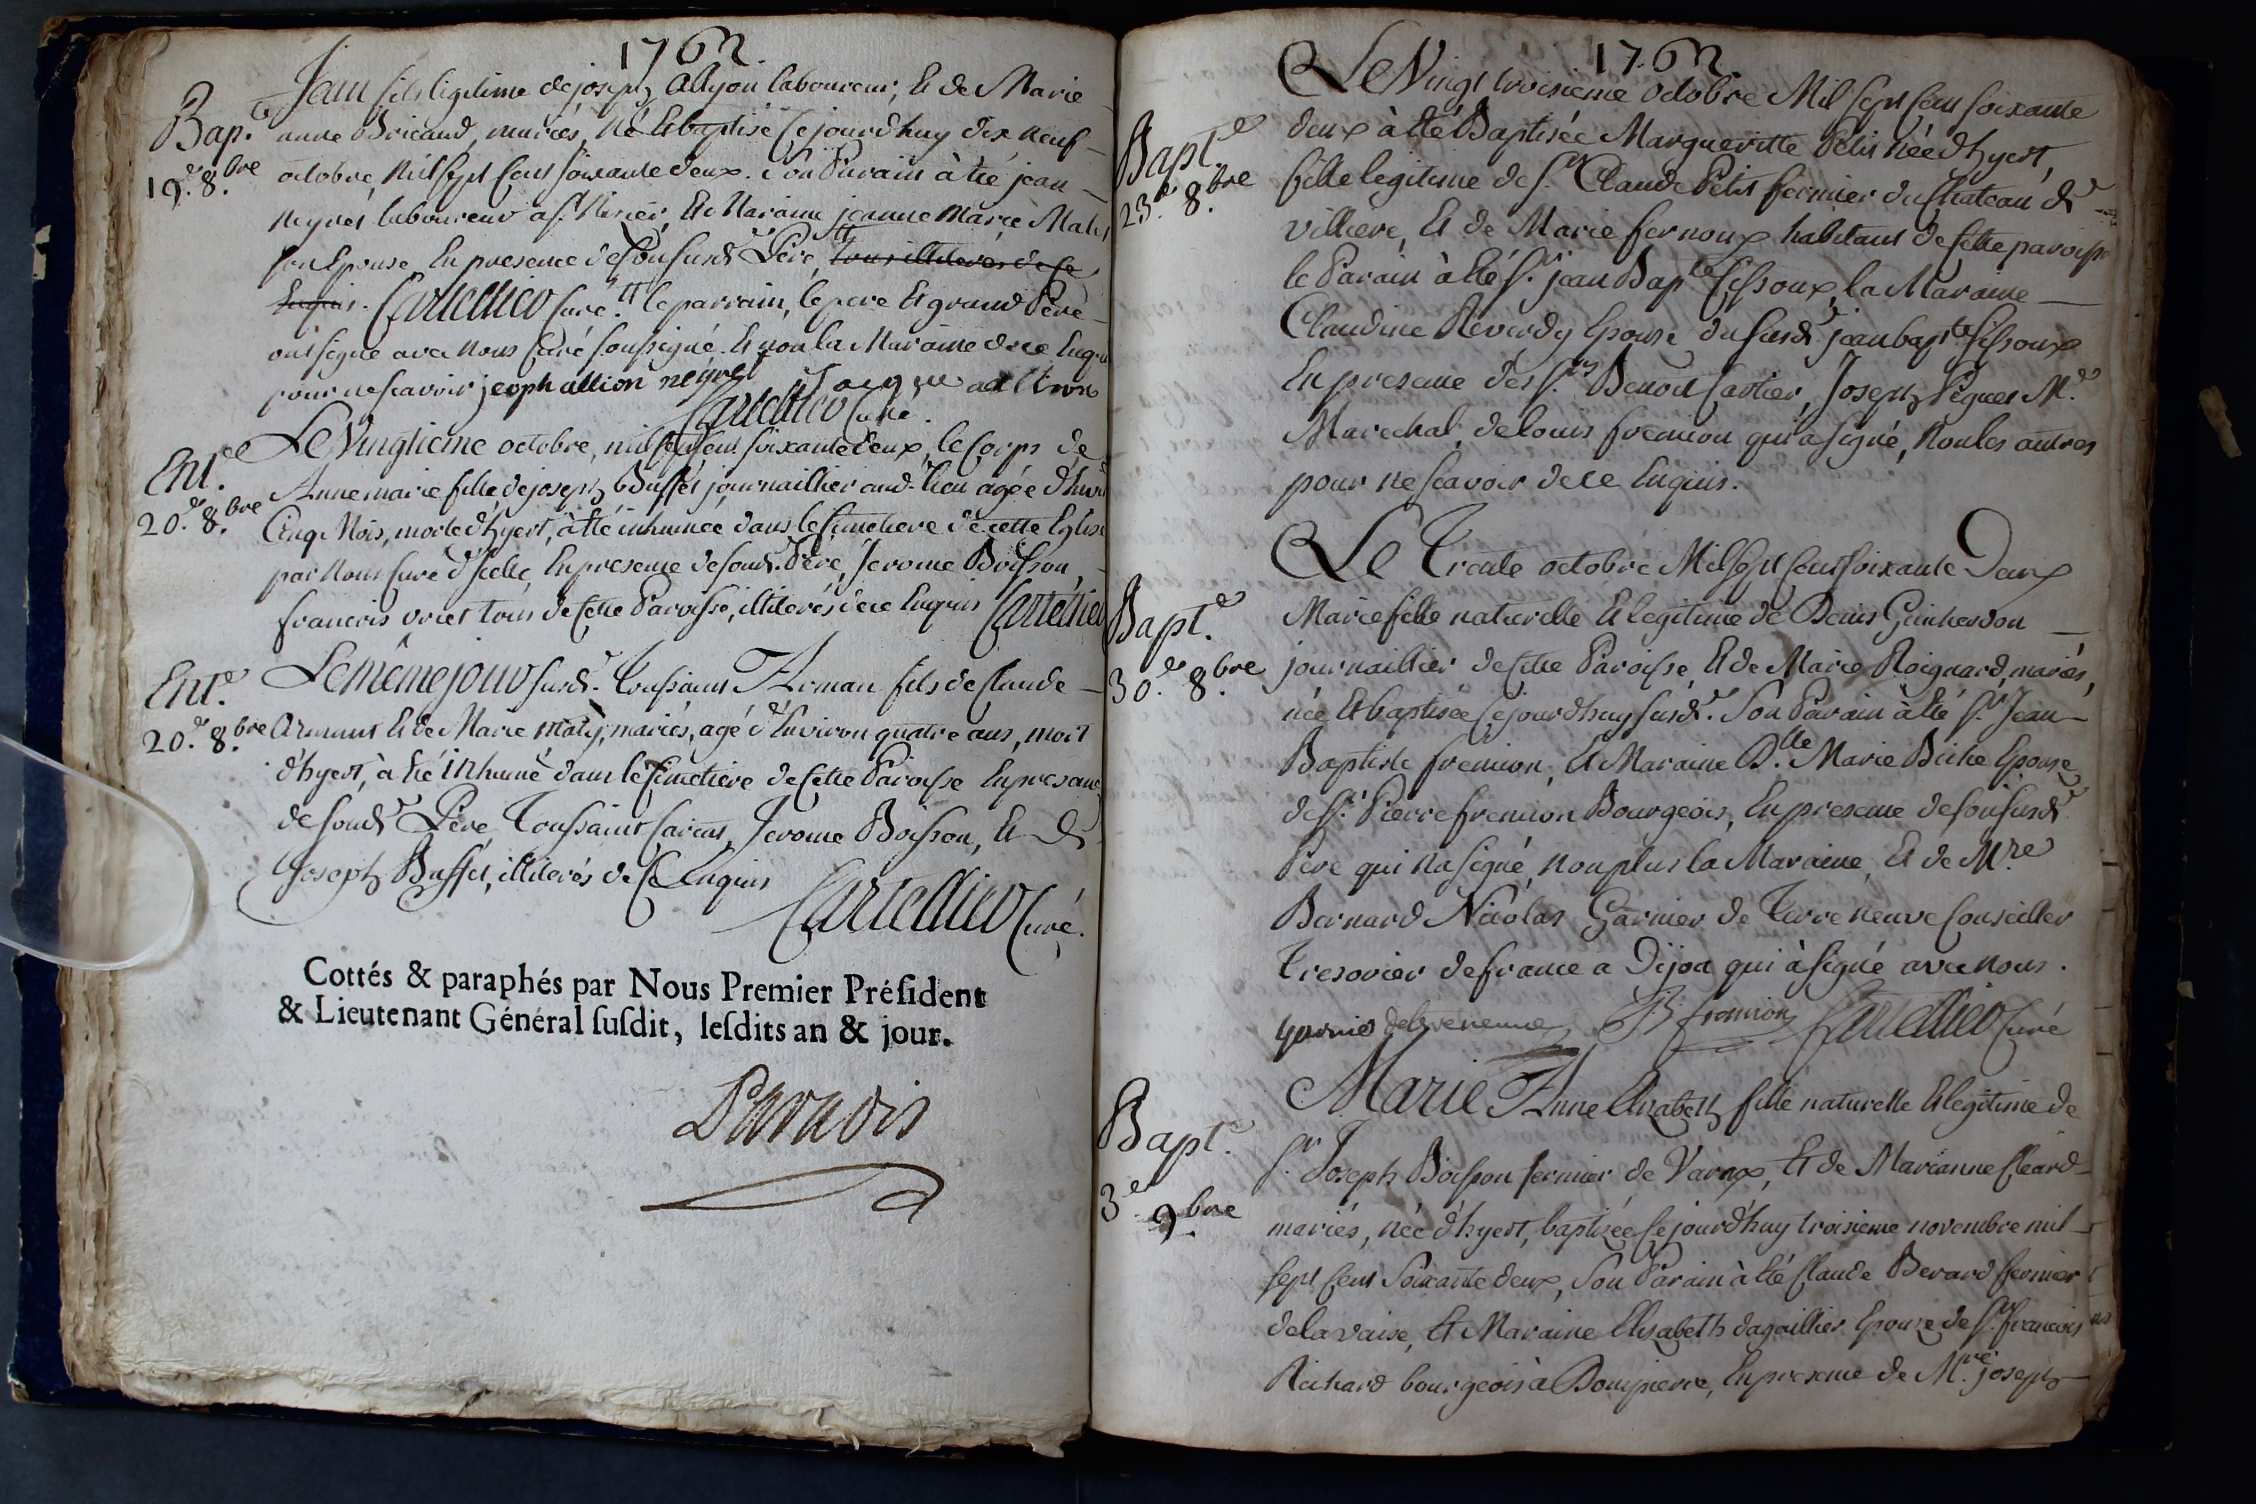 1762
Jean fils légitime de joseph Allyon laboureur, Et de Marie
Bap.e anne Bricaud, mariés, né Et baptisé Cejourdhuy dix neuf
19.e 8.bre octobre, mil sept Cent soixante deux. Son Parain à été jean
neyret laboureur a st. Nisier, Et Maraine jeanne Marie
son Epouse En presence de son susd. Père, tous illiterés de ce
Enquis. Cartellier Curé. tt le parrain, le pere Et grand Père
ont signé avec nous Curé soussigné. Et non la Maraine de ce Enquis
pour ne scavoir jeoph allion neyret Jacque allion
Cartellier Curé.
Ent.ee Le Vingtieme octobre, mil sept Cent soixante deux, le Corps de
20.e 8.bre Anne marie fille de joseph Buffet journaillier aud. lieu agée d'Environ
Cinq Mois, morte d'hyert, à été inhumée dans le Cimetiere de cette Eglise
par nous Curé d'Jcelle, En presence de sond. Père, Jerome Boisson,
francois tous de Cette Paroisse, illiterés de ce Enquis Cartellier
Ent.e Le même jour susd. Toussaint Arman fils de Claude
20.e 8.bre Armant Et de Marie Maty, mariés, agé d'Environ quatre ans, mort
d'hyert, à été inhumé dans le Cimetière de Cette Paroisse En presance
de sond. Père, Toussaint , Jerome Boisson, Et de
Joseph Buffet, illiterés de Ce Enquis
Cartellier Curé.
Cottés & paraphés par Nous Premier Préſident
& Lieutenant Général ſuſdit, leſdits an & jour.
1762
Le Vingt troisieme octobre Mil sept Cent soixante
Bapt.e deux à été Baptisée Margueritte Petit née d'hyert,
23.e 8.bre fille legitime de sr. Claude Petit fermier du Chateau de
villiere, Et de Marie fernoux habitant de Cette paroisse
le Parain à été sr. jean Bapte. Cissoux, la Maraine
Claudine Reverdy Epouse du susd. jean bapte. Cissoux
En presence des srs. Benoit Cartier, Joseph Peguet Md.
Marechal, de louis fremion qui a signé, Non les autres
pour ne scavoir de ce Enquis.
Le Trente octobre Mil sept Cent soixante Deux
Bapt.e Marie fille naturelle Et legitime de Denis Guinherdon
30.e 8.bre journaillier de Cette Paroisse, Et de Marie Roignard, mariés,
née Et baptisée Cejourdhuy susd. Son Parain à été sr. Jean
Baptiste fremion, Et Maraine Dlle. Marie Biche Epouse
de sr. Pierre fremion Bourgeois, En presence de son susd.
Pere qui n'a signé, non plus la Maraine, Et de Mre
Bernard Nicolas Garnier de Terreneuve Conseiller
Tresorier de france a Dijon qui à signé avec nous.
garnier deterreneuve JB fremion Cartellier Curé
Marie Anne Elizabeth fille naturelle Et legitime de
Bapt.e sr. Joseph Boisson fermier de Varax, Et de Marianne Cleard
3.e 9.bre mariés, née d'hyert, baptizée Cejourdhuy troisieme novembre mil
sept Cent Soixante deux, Son Parain à été Claude Berard fermier
delavaise, Et Maraine Elisabeth dagaillier Epouze de sr. francois
Richard bourgeois à Dompierre, En presence de Mre. joseph